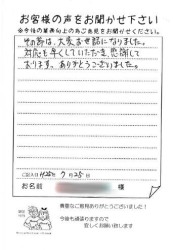 お客様の声をお聞かせ下さい
※今後の業務向上の為ご意見をお聞かせください。
その節は、大変お世話になりました。
対応も早くしていただき、感謝して
おります。ありがとうございました。
ご記入日 H25年 9月25日
お名前 様
貴重なご意見ありがとうございました!
今後も頑張りますので
宜しくお願い致します